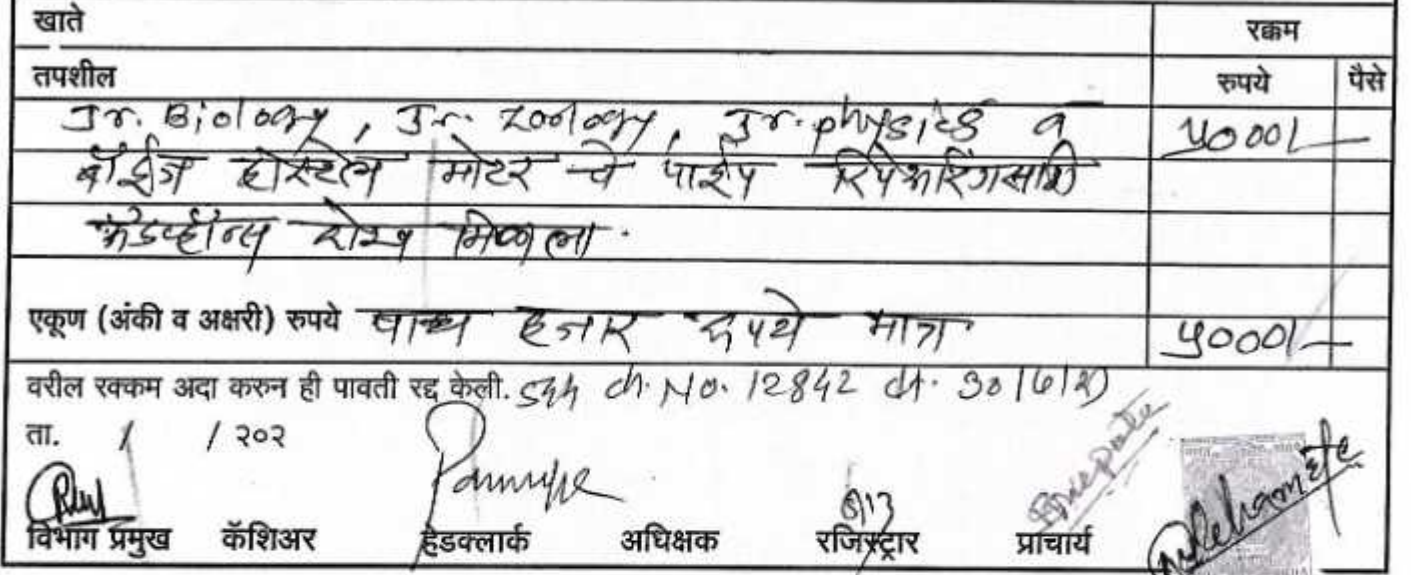 खाते रक्कम
तपशील रुपये पैसे
Jr. Biology, Jr. Zoology, Jr. physics व ५०००/-
बॉईज होस्टेल मोटर चे पाईप रिपेअरिंगसाठी
अॅडव्हान्स रोख मिळाला.
एकूण (अंकी व अक्षरी) रुपये पाच हजार रुपये मात्र ५०००/-
वरील रक्कम अदा करुन ही पावती रद्द केली. ch. No. 12842 dt. 30/6/21
ता. / / २०२
विभाग प्रमुख कॅशिअर हेडक्लार्क अधिक्षक रजिस्ट्रार प्राचार्य